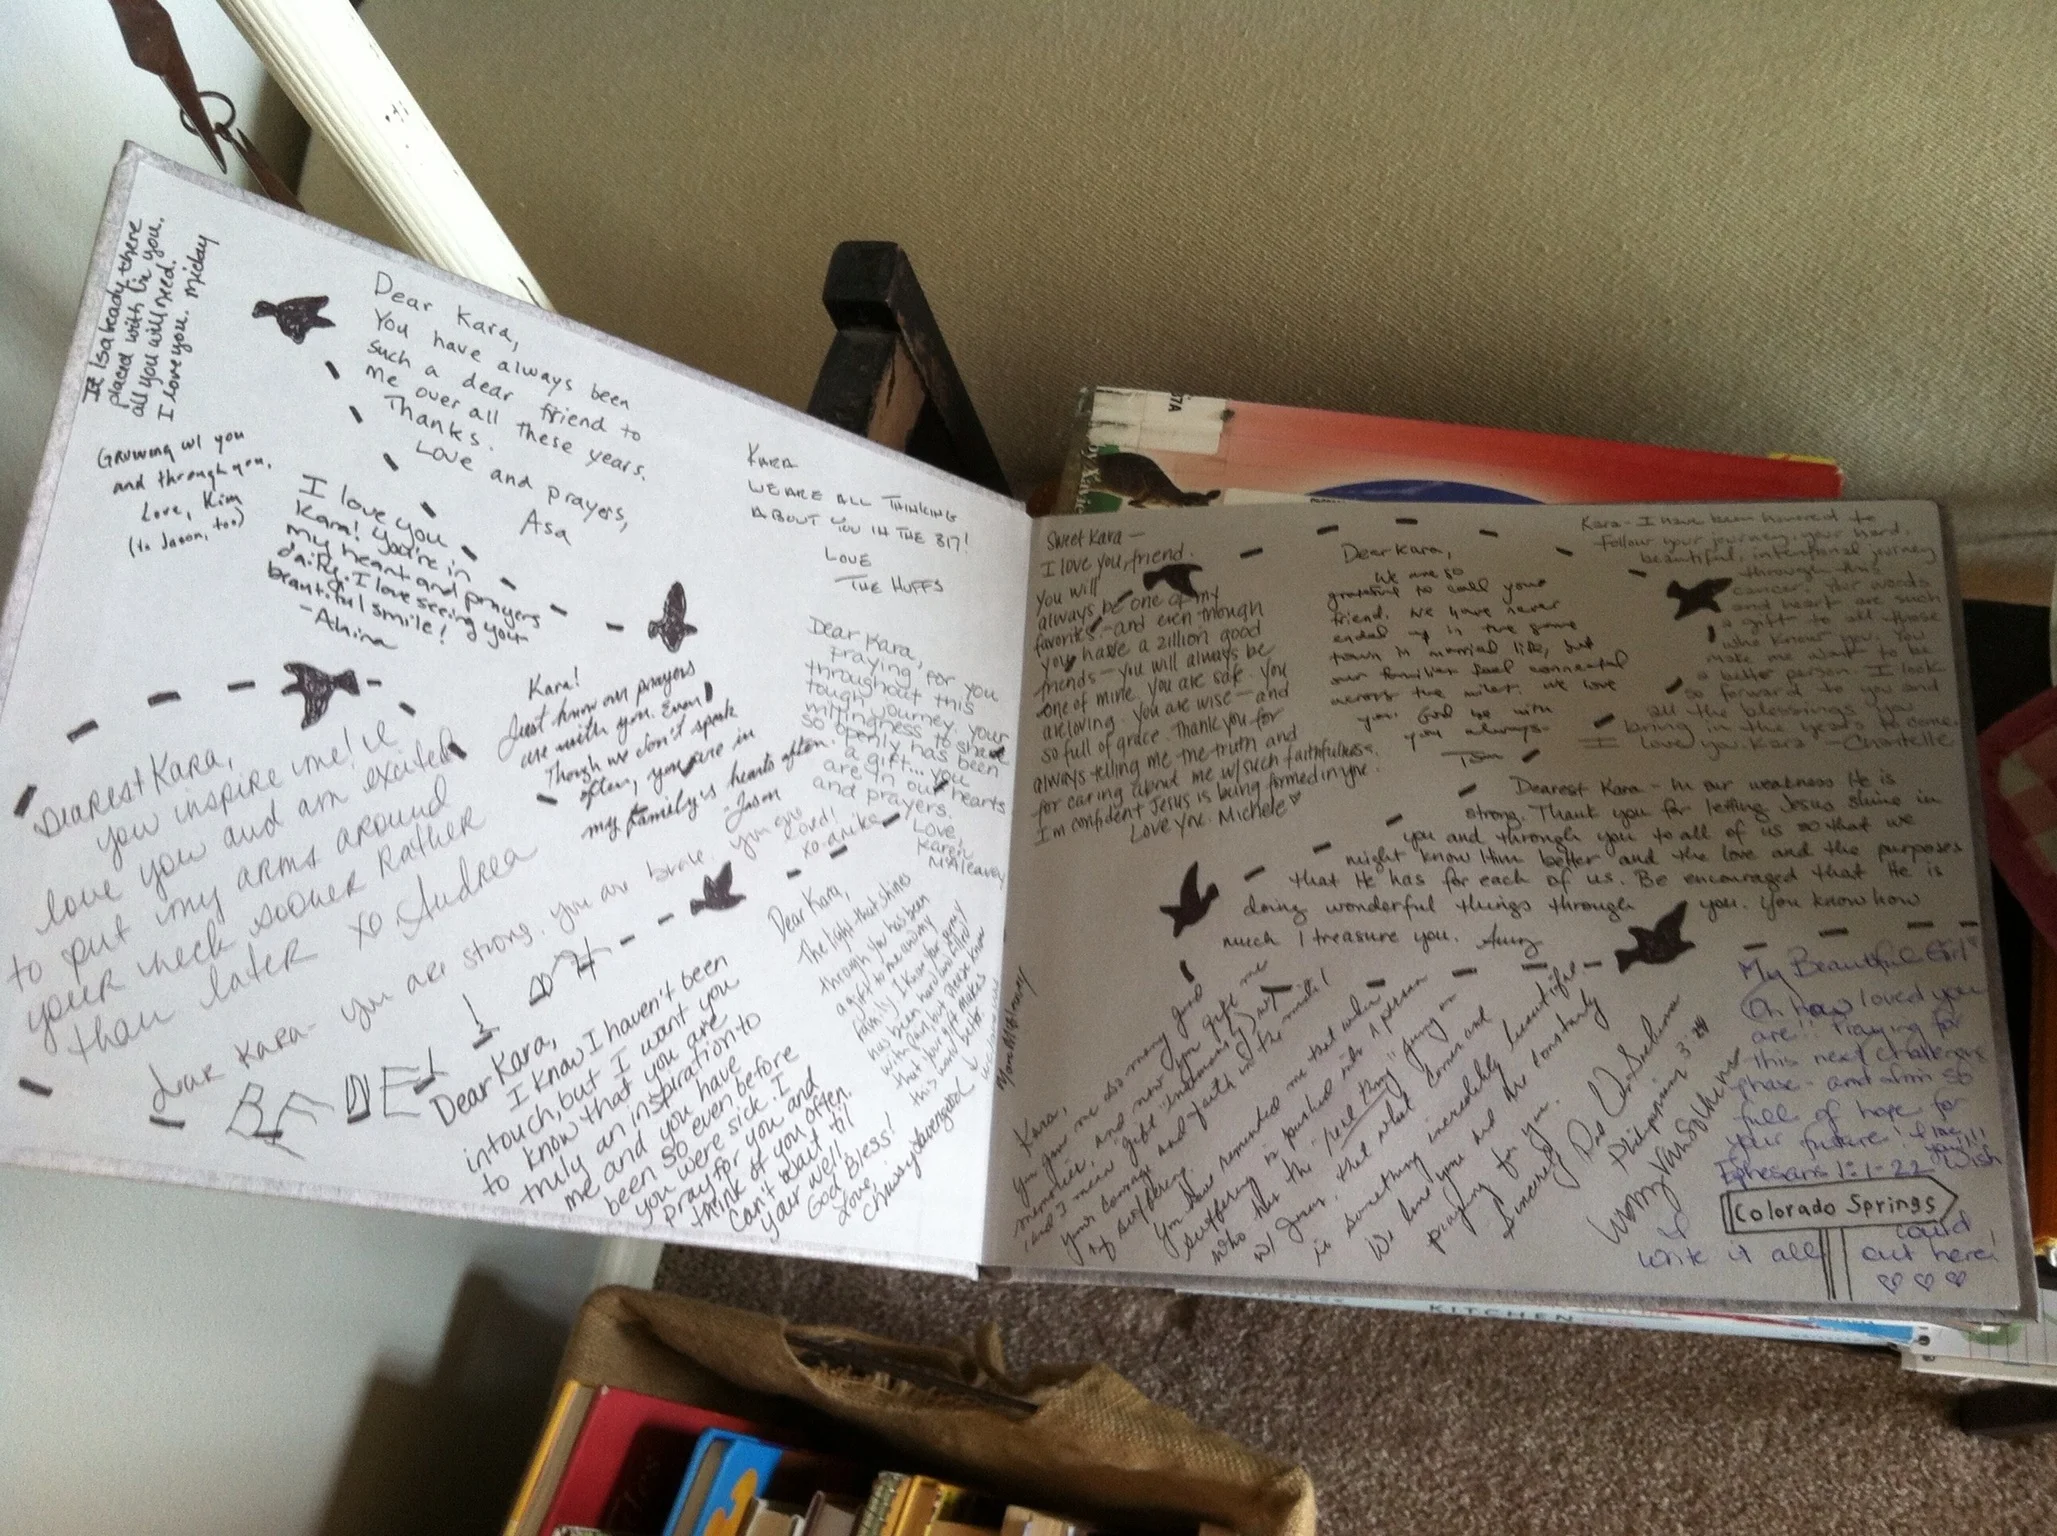 placed with in you.
all you will need.
I love you. Mickay
Growing w/ you
and through you,
Love, Kim
(to Jason, too)
Dear Kara,
You have always been
such a dear friend to
me over all these years.
Thanks.
Love and prayers,
Asa
I love you
Kara! You're in
my heart and prayers
daily. I love seeing your
beautiful smile!
KARA
WE ARE ALL THINKING
ABOUT YOU IN THE 317!
LOVE
THE HUFFS
Kara!
Just know our prayers
are with you. Even
Though we don't speak
often, you are in
my family's hearts often.
-Jason
Dear Kara,
praying for you
throughout this
tough journey. your
willingness to share
so openly has been
a gift... you
are in our hearts
and prayers.
Love,
Karen
McAleavey
Dearest Kara,
you inspire me! I
love you and am excited
to put my arms around
your neck sooner rather
than later xo Audrea
Dear Kara- you are strong. you are brave. you are
Loved!
Dear Kara,
The light that shines
through you has been
a gift to me and my
family. I know the journey
has been hard and filled
with pain, but please know
that your gift makes
this world better.
Dear Kara,
I know I haven't been
in touch, but I want you
to know that you are
truly an inspiration to
me and you have
been so even before
you were sick. I
pray for you and
think of you often.
Can't wait til
your well!
God Bless!
Love,
Sweet Kara -
I love you, friend.
You will
always be one of my
favorites - and even though
you have a zillion good
friends - you will always be
one of mine. You are safe. You
are loving. You are wise - and
so full of grace. Thank you for
always telling me the truth and
for caring about me w/ such faithfulness.
I'm confident Jesus is being formed in you.
Love you. Michele
Dear Kara,
We are so
grateful to call you
friend. We have never
ended up in the same
town in married life, but
our families feel connected
across the miles. We love
you. God be with
you always-
Kara - I have been honored to
follow your journey, your hard,
beautiful, intentional journey
through this
cancer. Your words
and heart are such
a gift to all those
who know you. You
make me want to be
a better person. I look
so forward to you and
all the blessings you
bring in the years to come.
I love you, Kara - Chantelle
Dearest Kara - In our weakness He is
strong. Thank you for letting Jesus shine in
you and through you to all of us so that we
might know Him better and the love and the purposes
that He has for each of us. Be encouraged that He is
doing wonderful things through you. You know how
much I treasure you. Amy
Kara,
You gave me so many good
memories, and now you gift me
your courage and faith in the midst
of suffering.
You have reminded me that when
suffering is pushed into a person
who has the "real thing" going on
w/ Jesus, that what comes out
is something incredibly beautiful
We love you and are constantly
praying for you.
Sincerely
Philippians 3:
My Beautiful Girl
Oh how loved you
are!! Praying for
this next challenge
phase - and am so
full of hope for
your future! I love
you!!
Ephesians 1:1-22
Wish
I could
write it all out here!
Colorado Springs
KITCHEN